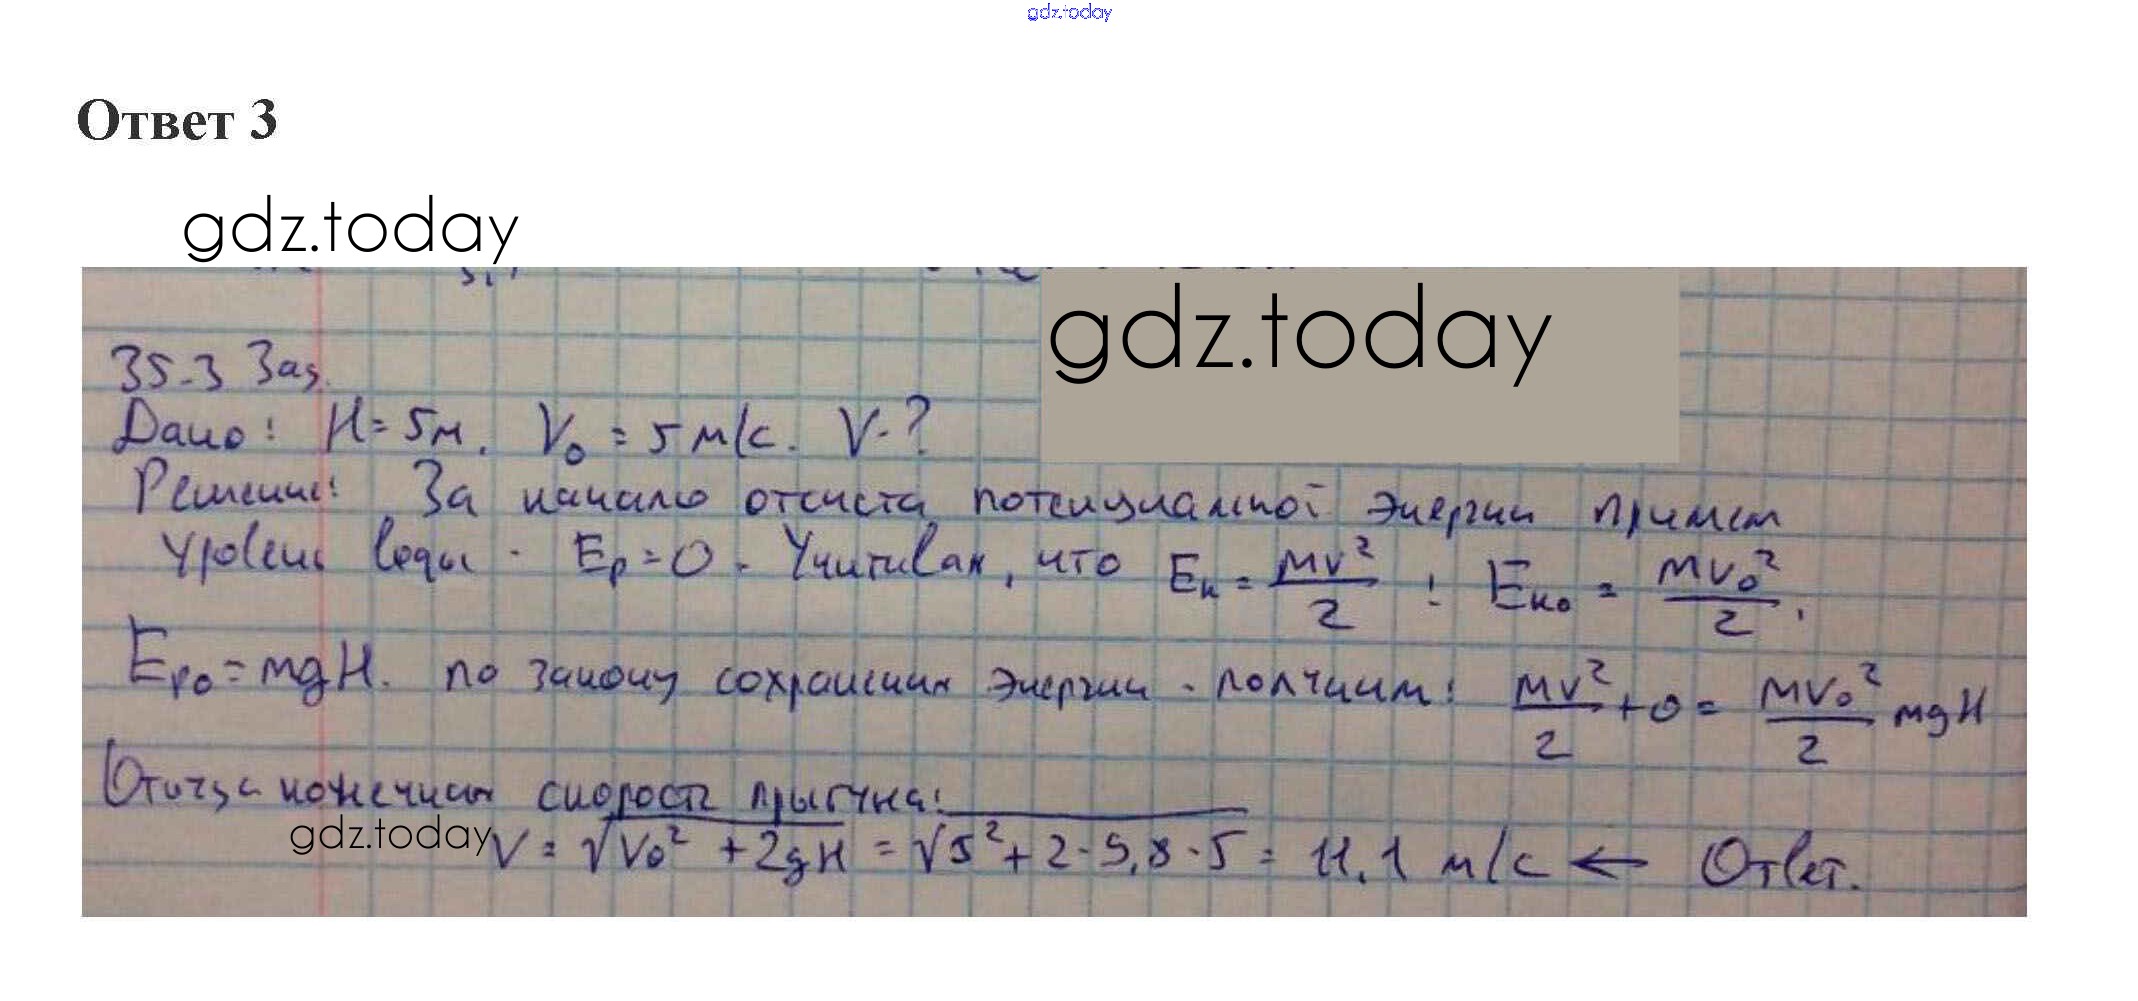 gdz.today
Ответ 3
gdz.today
gdz.today
35-3 Зад.
Дано: H = 5м. V₀ = 5 м/с. V-?
Решение: За начало отсчета потенциальной энергии примем
уровень воды. Eр = 0. Учитывая, что Eк = mv²/2 ; Eко = mv₀²/2 ,
Eро = mgH. по закону сохранения энергии полчим: mv²/2 + 0 = mv₀²/2 mgH
Откуда конечная скорость прыгуна:
gdz.today
V = √V₀² + 2gH = √5² + 2·9,8·5 = 11.1 м/с ← Ответ.